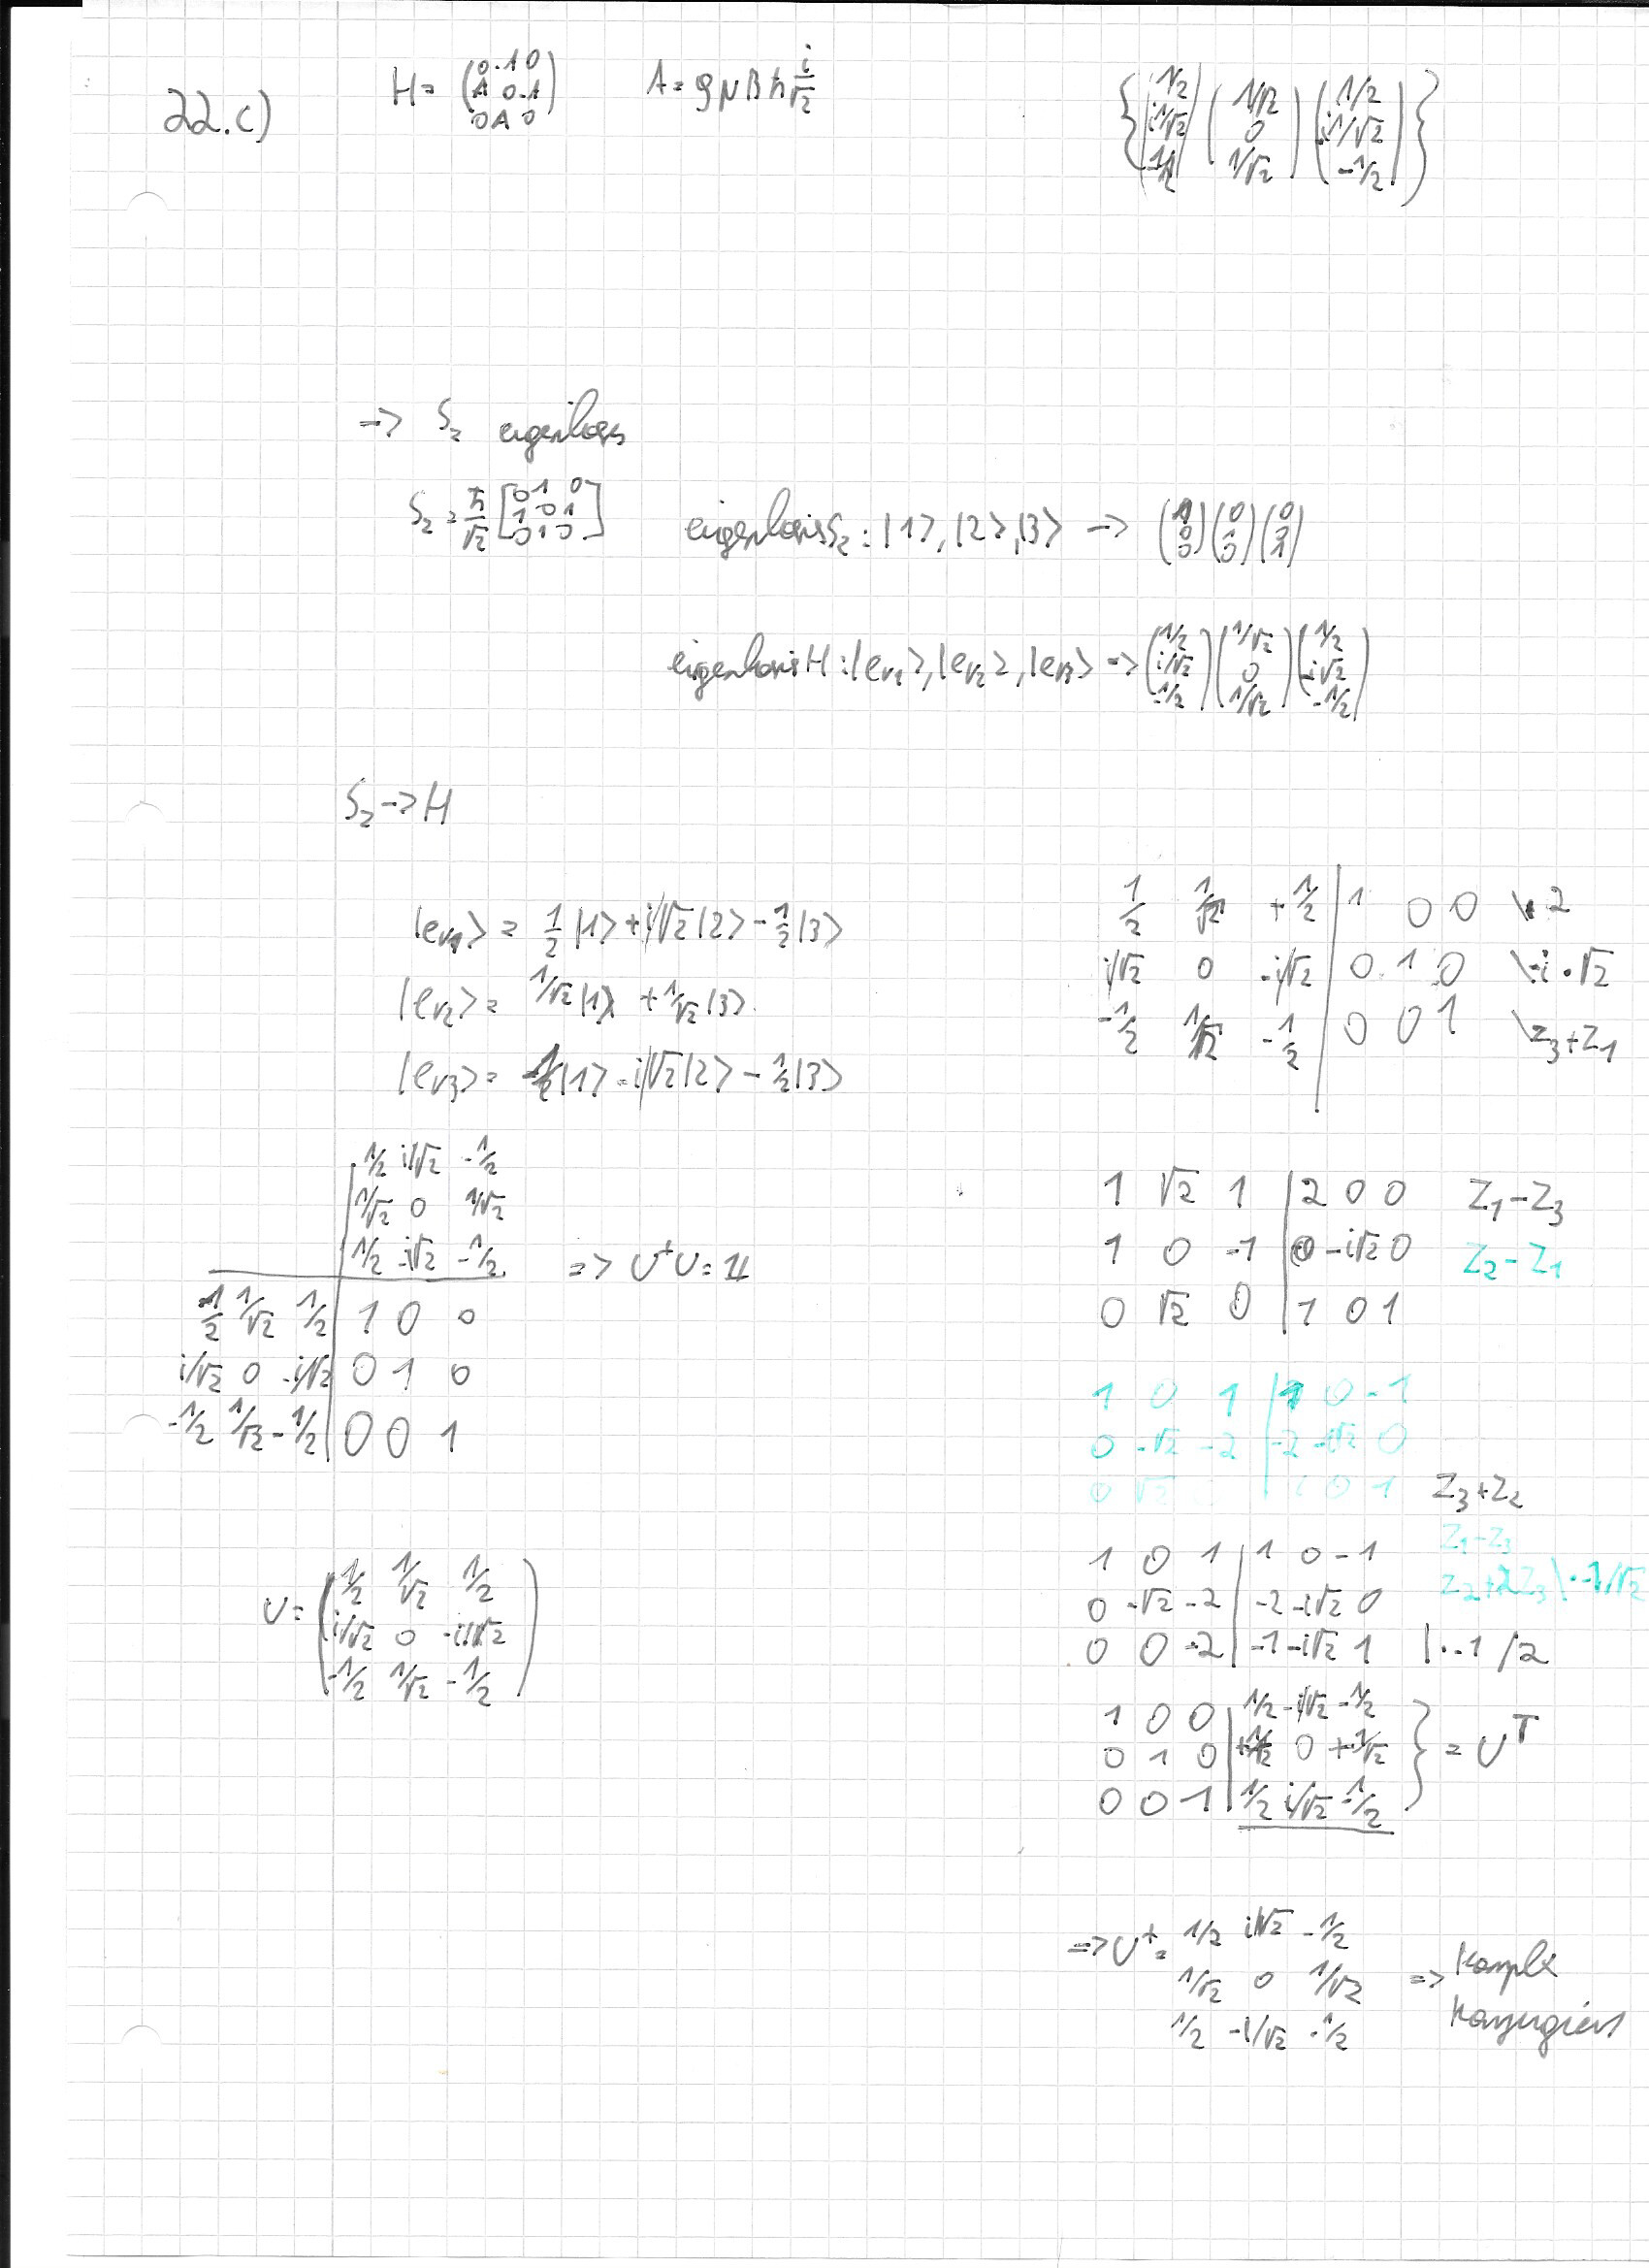 22.c)
H = (0 -A 0 / A 0 -A / 0 A 0) A = gμBħ i/√2 {(1/2 / i1/√2 / -1/2) (1/√2 / 0 / 1/√2) (1/2 / -i1/√2 / -1/2)}
=> Sz eigenbasis
Sz = ħ/√2 [0 1 0 / 1 0 1 / 0 1 0] eigenbasis Sz: |1>, |2>, |3> -> (1 / 0 / 0) (0 / 1 / 0) (0 / 0 / 1)
eigenbasis H: |ev1>, |ev2>, |ev3> => (1/2 / i/√2 / -1/2) (1/√2 / 0 / 1/√2) (1/2 / -i√2 / -1/2)
Sz -> H
|ev1> = 1/2 |1> + i/√2 |2> - 1/2 |3>
|ev2> = 1/√2 |1> + 1/√2 |3>
|ev3> = 1/2 |1> - i/√2 |2> - 1/2 |3>
1/2 1/√2 +1/2 | 1 0 0 \· 2
i/√2 0 -i/√2 | 0 1 0 \-i·√2
-1/2 1/√2 -1/2 | 0 0 1 \z3+z1
1/2 i/√2 -1/2
1/√2 0 1/√2
1/2 -i√2 -1/2 => U†U = 1
1/2 1/√2 1/2 | 1 0 0
i/√2 0 -i/√2 | 0 1 0
-1/2 1/√2 -1/2 | 0 0 1
1 √2 1 | 2 0 0 Z1-Z3
1 0 -1 | 0 -i√2 0 Z2-Z1
0 √2 0 | 1 0 1
1 0 1 | 1 0 -1
0 -√2 -2 | -2 -i√2 0
0 √2 0 | 1 0 1 Z3+Z2
1 0 1 | 1 0 -1 Z1-Z3
0 -√2 -2 | -2 -i√2 0 Z2+2Z3 \·-1/√2
0 0 -2 | -1 -i√2 1 | · -1/2
U = (1/2 1/√2 1/2 / i/√2 0 -i1/√2 / -1/2 1/√2 -1/2)
1 0 0 | 1/2 -i/√2 -1/2
0 1 0 | +1/√2 0 +1/√2 } = U^T
0 0 1 | 1/2 i/√2 -1/2
=> U† = 1/2 i/√2 -1/2
1/√2 0 1/√2 => Komplex
1/2 -i/√2 -1/2 Konjugiert